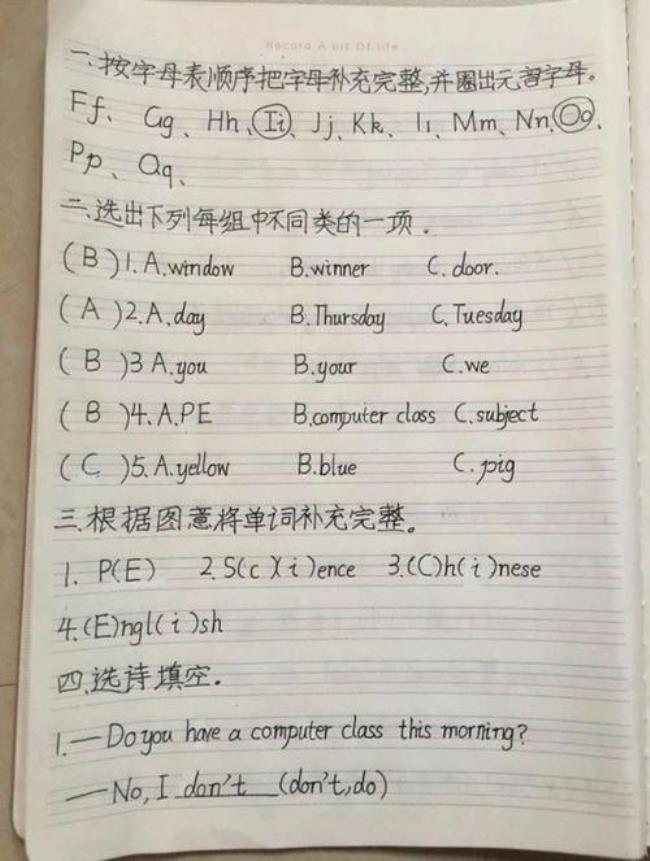 Record A bit Of life
一、按字母表顺序把字母补充完整,并圈出元音字母。
Ff、 Gg、 Hh、Ii、Jj、Kk、 Ll、Mm、Nn、Oo、
Pp、 Qq、
二、选出下列每组中不同类的一项.
(B)1.A.window B.winner C.door.
(A)2.A.day B.Thursday C.Tuesday
(B)3 A.you B.your C.we
(B)4.A.PE B.computer class C.subject
(C)5.A.yellow B.blue C.pig
三.根据图意将单词补充完整。
1. P(E) 2.S(c)(i)ence 3.(C)h(i)nese
4.(E)ngl(i)sh
四.选诗填空.
1.—Do you have a computer class this morning?
—No, I don't (don't,do)